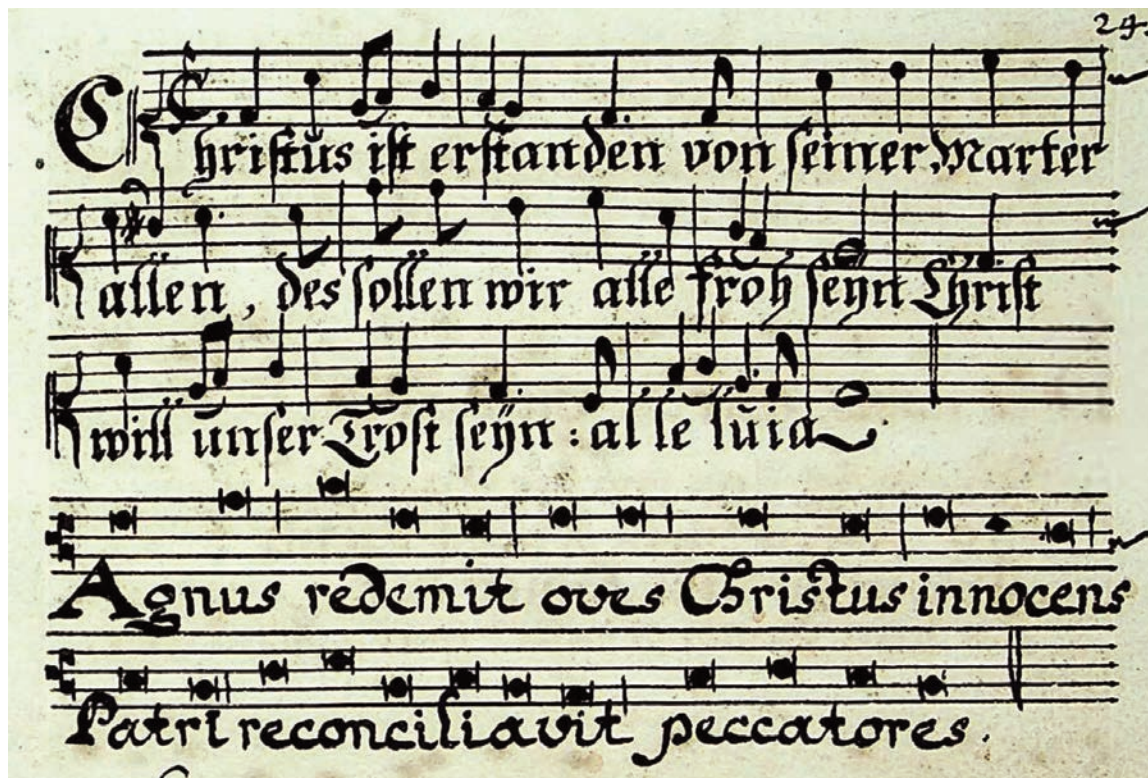 24.
Christus ist erstanden von seiner Marter
allen, des sollen wir alle froh seÿn Christ
will unser Trost seÿn : al le luia
Agnus redemit oves Christus innocens
Patri reconciliavit peccatores.